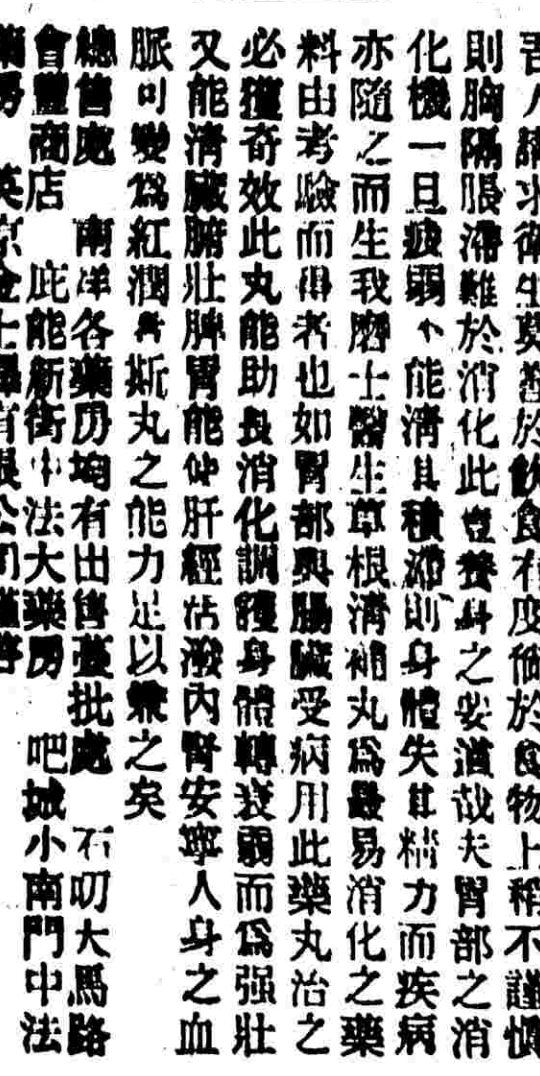 吾人講求衛生莫善於飲食有度倘於食物上稍不謹慎
則胸隔脹滯難於消化此豈養身之妥道哉夫胃部之消
化機一旦疲弱不能清其積滯則身體失其精力而疾病
亦隨之而生我磨士醫生草根清補丸為最易消化之藥
料由考驗而得者也如腎部與腸臟受病用此藥丸治之
必獲奇效此丸能助長消化訓穫身體轉衰弱而為强壯
又能清臟腑壯脾胃能伸肝經活潑內腎安寧人身之血
脈可變為紅潤者斯丸之能力足以兼之矣
總售處 南洋各藥房均有出售躉批處 石叻大馬路
會豐商店 庇能新街中法大藥房 吧城小南門中法
藥房 英京 士 有限公司謹啓